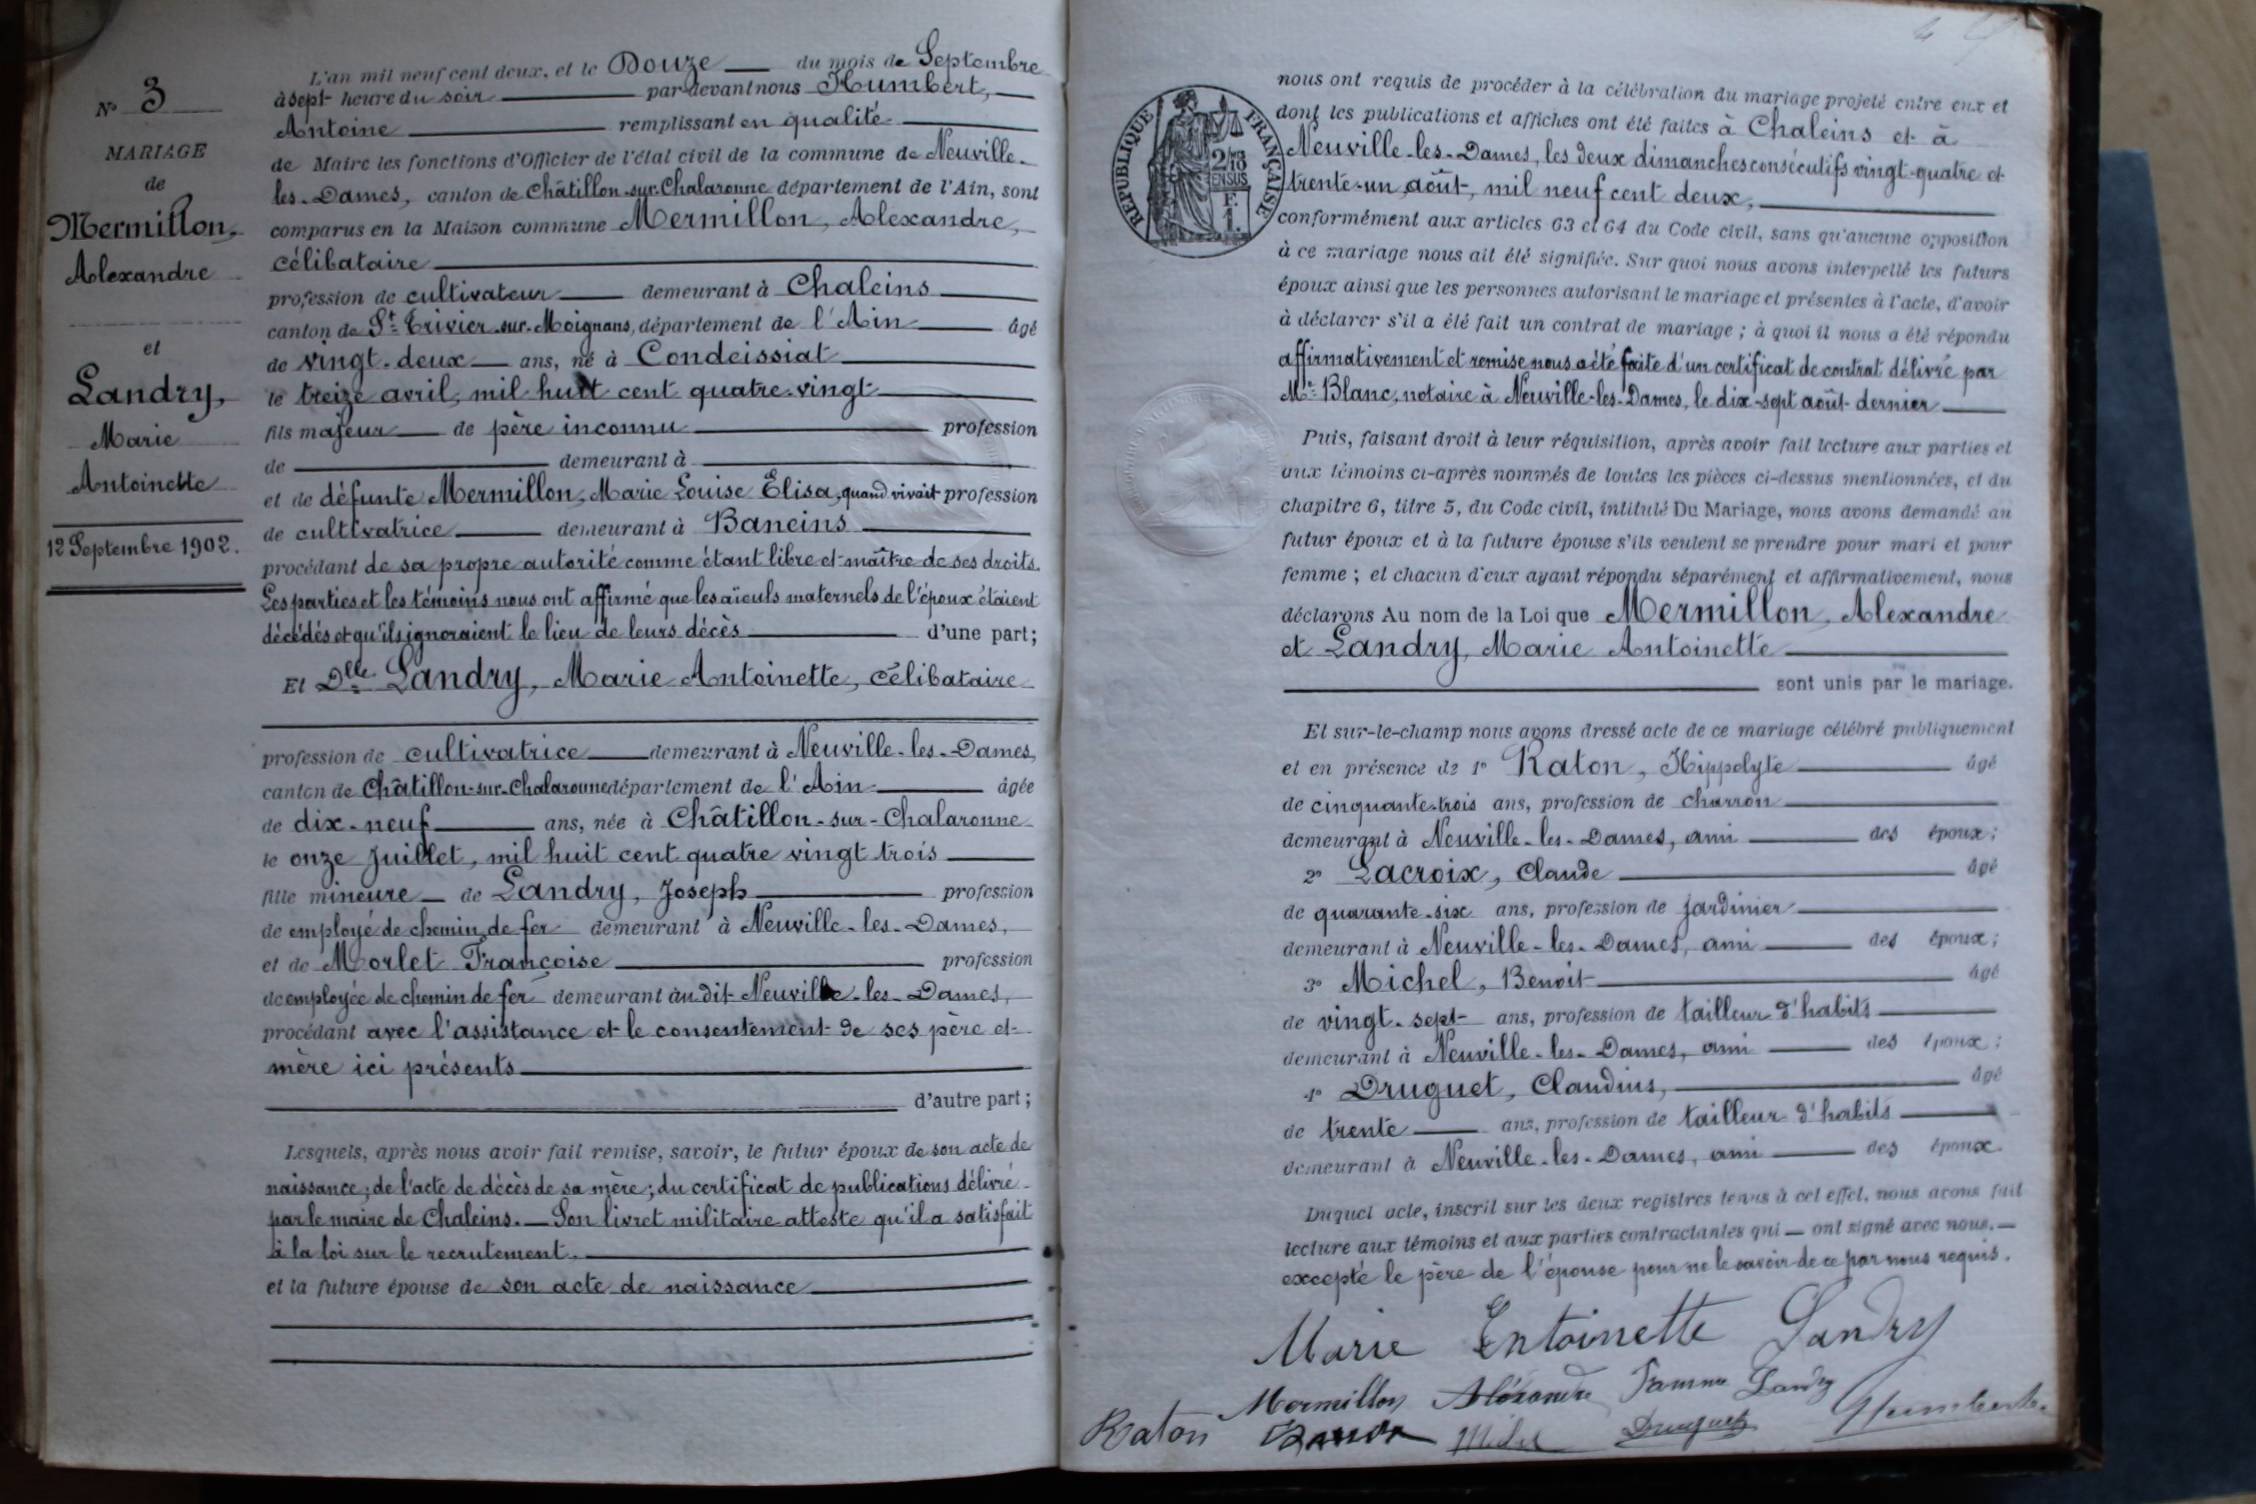 N° 3
MARIAGE
de
Mermillon,
Alexandre
et
Landry,
Marie
Antoinette
12 Septembre 1902.
L'an mil neuf cent deux, et le Douze du mois de Septembre
à sept heure du soir par devant nous Humbert,
Antoine remplissant en qualité
de Maire les fonctions d'Officier de l'état civil de la commune de Neuville-
les-Dames, canton de Châtillon-sur-Chalaronne département de l'Ain, sont
comparus en la Maison commune Mermillon, Alexandre,
célibataire
profession de cultivateur demeurant à Chaleins
canton de St Trivier-sur-Moignans, département de l'Ain âgé
de vingt-deux ans, né à Condeissiat
le treize avril, mil huit cent quatre-vingt
fils majeur de père inconnu profession
de demeurant à
et de défunte Mermillon, Marie Louise Élisa, quand vivait profession
de cultivatrice demeurant à Baneins
procédant de sa propre autorité comme étant libre et maître de ses droits.
Les parties et les témoins nous ont affirmé que les aïeuls maternels de l'époux étaient
décédés et qu'ils ignoraient le lieu de leurs décès d'une part;
Et Dlle Landry, Marie Antoinette, célibataire
profession de cultivatrice demeurant à Neuville-les-Dames,
canton de Châtillon-sur-Chalaronne département de l'Ain âgée
de dix-neuf ans, née à Châtillon-sur-Chalaronne
le onze Juillet, mil huit cent quatre vingt trois
fille mineure de Landry, Joseph profession
de employé de chemin de fer demeurant à Neuville-les-Dames,
et de Morlet Françoise profession
de employée de chemin de fer demeurant au dit Neuville-les-Dames,
procédant avec l'assistance et le consentement de ses père et
mère ici présents
d'autre part;
Lesquels, après nous avoir fait remise, savoir, le futur époux de son acte de
naissance; de l'acte de décès de sa mère; du certificat de publications délivré
par le maire de Chaleins. — Son livret militaire atteste qu'il a satisfait
à la loi sur le recrutement.
et la future épouse de son acte de naissance
RÉPUBLIQUE FRANÇAISE
2/10
EN SUS
F.
1.
nous ont requis de procéder à la célébration du mariage projeté entre eux et
dont les publications et affiches ont été faites à Chaleins et à
Neuville-les-Dames, les deux dimanches consécutifs vingt-quatre et
trente-un août, mil neuf cent deux,
conformément aux articles 63 et 64 du Code civil, sans qu'aucune opposition
à ce mariage nous ait été signifiée. Sur quoi nous avons interpellé les futurs
époux ainsi que les personnes autorisant le mariage et présentes à l'acte, d'avoir
à déclarer s'il a été fait un contrat de mariage; à quoi il nous a été répondu
affirmativement et remise nous a été faite d'un certificat de contrat délivré par
Me Blanc, notaire à Neuville-les-Dames, le dix-sept août dernier
Puis, faisant droit à leur réquisition, après avoir fait lecture aux parties et
aux témoins ci-après nommés de toutes les pièces ci-dessus mentionnées, et du
chapitre 6, titre 5, du Code civil, intitulé Du Mariage, nous avons demandé au
futur époux et à la future épouse s'ils veulent se prendre pour mari et pour
femme; et chacun d'eux ayant répondu séparément et affirmativement, nous
déclarons Au nom de la Loi que Mermillon, Alexandre
et Landry, Marie Antoinette
sont unis par le mariage.
Et sur-le-champ nous avons dressé acte de ce mariage célébré publiquement
et en présence de 1° Raton, Hippolyte âgé
de cinquante-trois ans, profession de charron
demeurant à Neuville-les-Dames, ami des époux;
2° Lacroix, Claude âgé
de quarante-six ans, profession de jardinier
demeurant à Neuville-les-Dames, ami des époux;
3° Michel, Benoit âgé
de vingt-sept ans, profession de tailleur d'habits
demeurant à Neuville-les-Dames, ami des époux;
4° Druguet, Claudius, âgé
de trente ans, profession de tailleur d'habits
demeurant à Neuville-les-Dames, ami des époux.
Duquel acte, inscrit sur les deux registres tenus à cet effet, nous avons fait
lecture aux témoins et aux parties contractantes qui — ont signé avec nous. —
excepté le père de l'épouse pour ne le savoir de ce par nous requis.
Marie Entoinette Landry
Mermillon Aléxandre Landry
Raton Michel Druguet Humbert